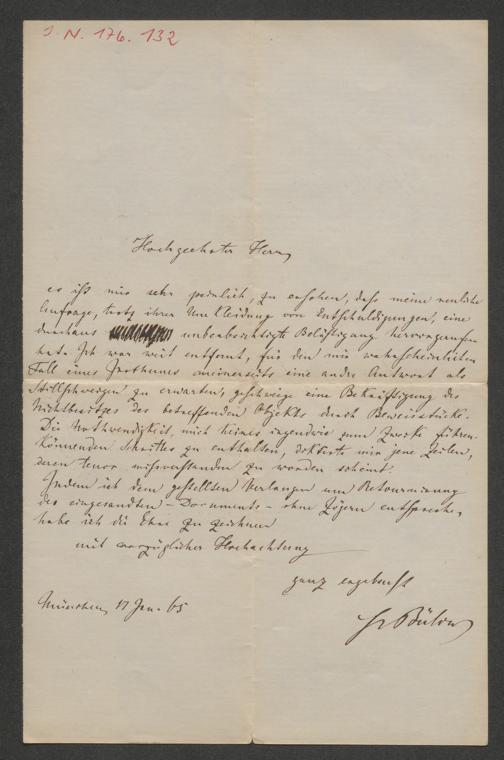 J. N. 176.132
Hochgeehrter Herr,
es ist mir sehr peinlich, zu ersehen, daß meine neuliche
Anfrage, trotz ihrer Umkleidung von Entschuldigungen, eine
durchaus unbeabsichtigte Belästigung hervorgerufen
hat. Ich war weit entfernt, für den mir wahrscheinlichen
Fall eines Irrthumes meinerseits eine andre Antwort als
Stillschweigen zu erwarten, geschweige eine Bekräftigung des
Nichtbesitzes des betreffenden Objekts durch Beweisstücke.
Die Nothwendigkeit, mich keines irgendwie zum Zwecke führen
könnenden Schrittes zu enthalten, diktirte mir jene Zeilen,
deren tenor mißverstanden zu worden scheint.
Indem ich dem gestellten Verlangen um Retournirung
des eingesandten – Documents – ohne Zögern entspreche,
habe ich die Ehre zu zeichnen
mit vorzüglicher Hochachtung
ganz ergebenst
München, 17 Jan. 65
Bülow